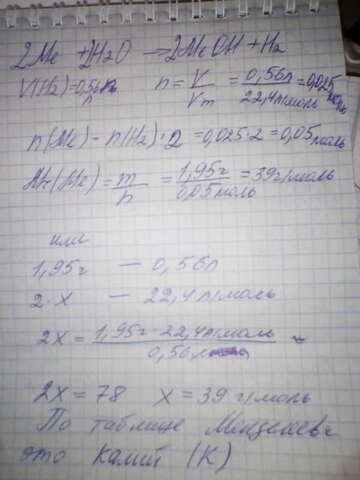 2Me + 2H2O → 2MeOH + H2
V(H2) = 0,56л n = V/Vm = 0,56л/22,4л/моль = 0,025моль
n(Me) = n(H2)·2 = 0,025·2 = 0,05моль
Mr(Me) = m/n = 1,95г/0,05моль = 39г/моль
или
1,95г — 0,56л
2·x — 22,4л/моль
2x = 1,95г·22,4л/моль/0,56л =
2x = 78 x = 39 г/моль
По таблице Менделеева
это калий (K)